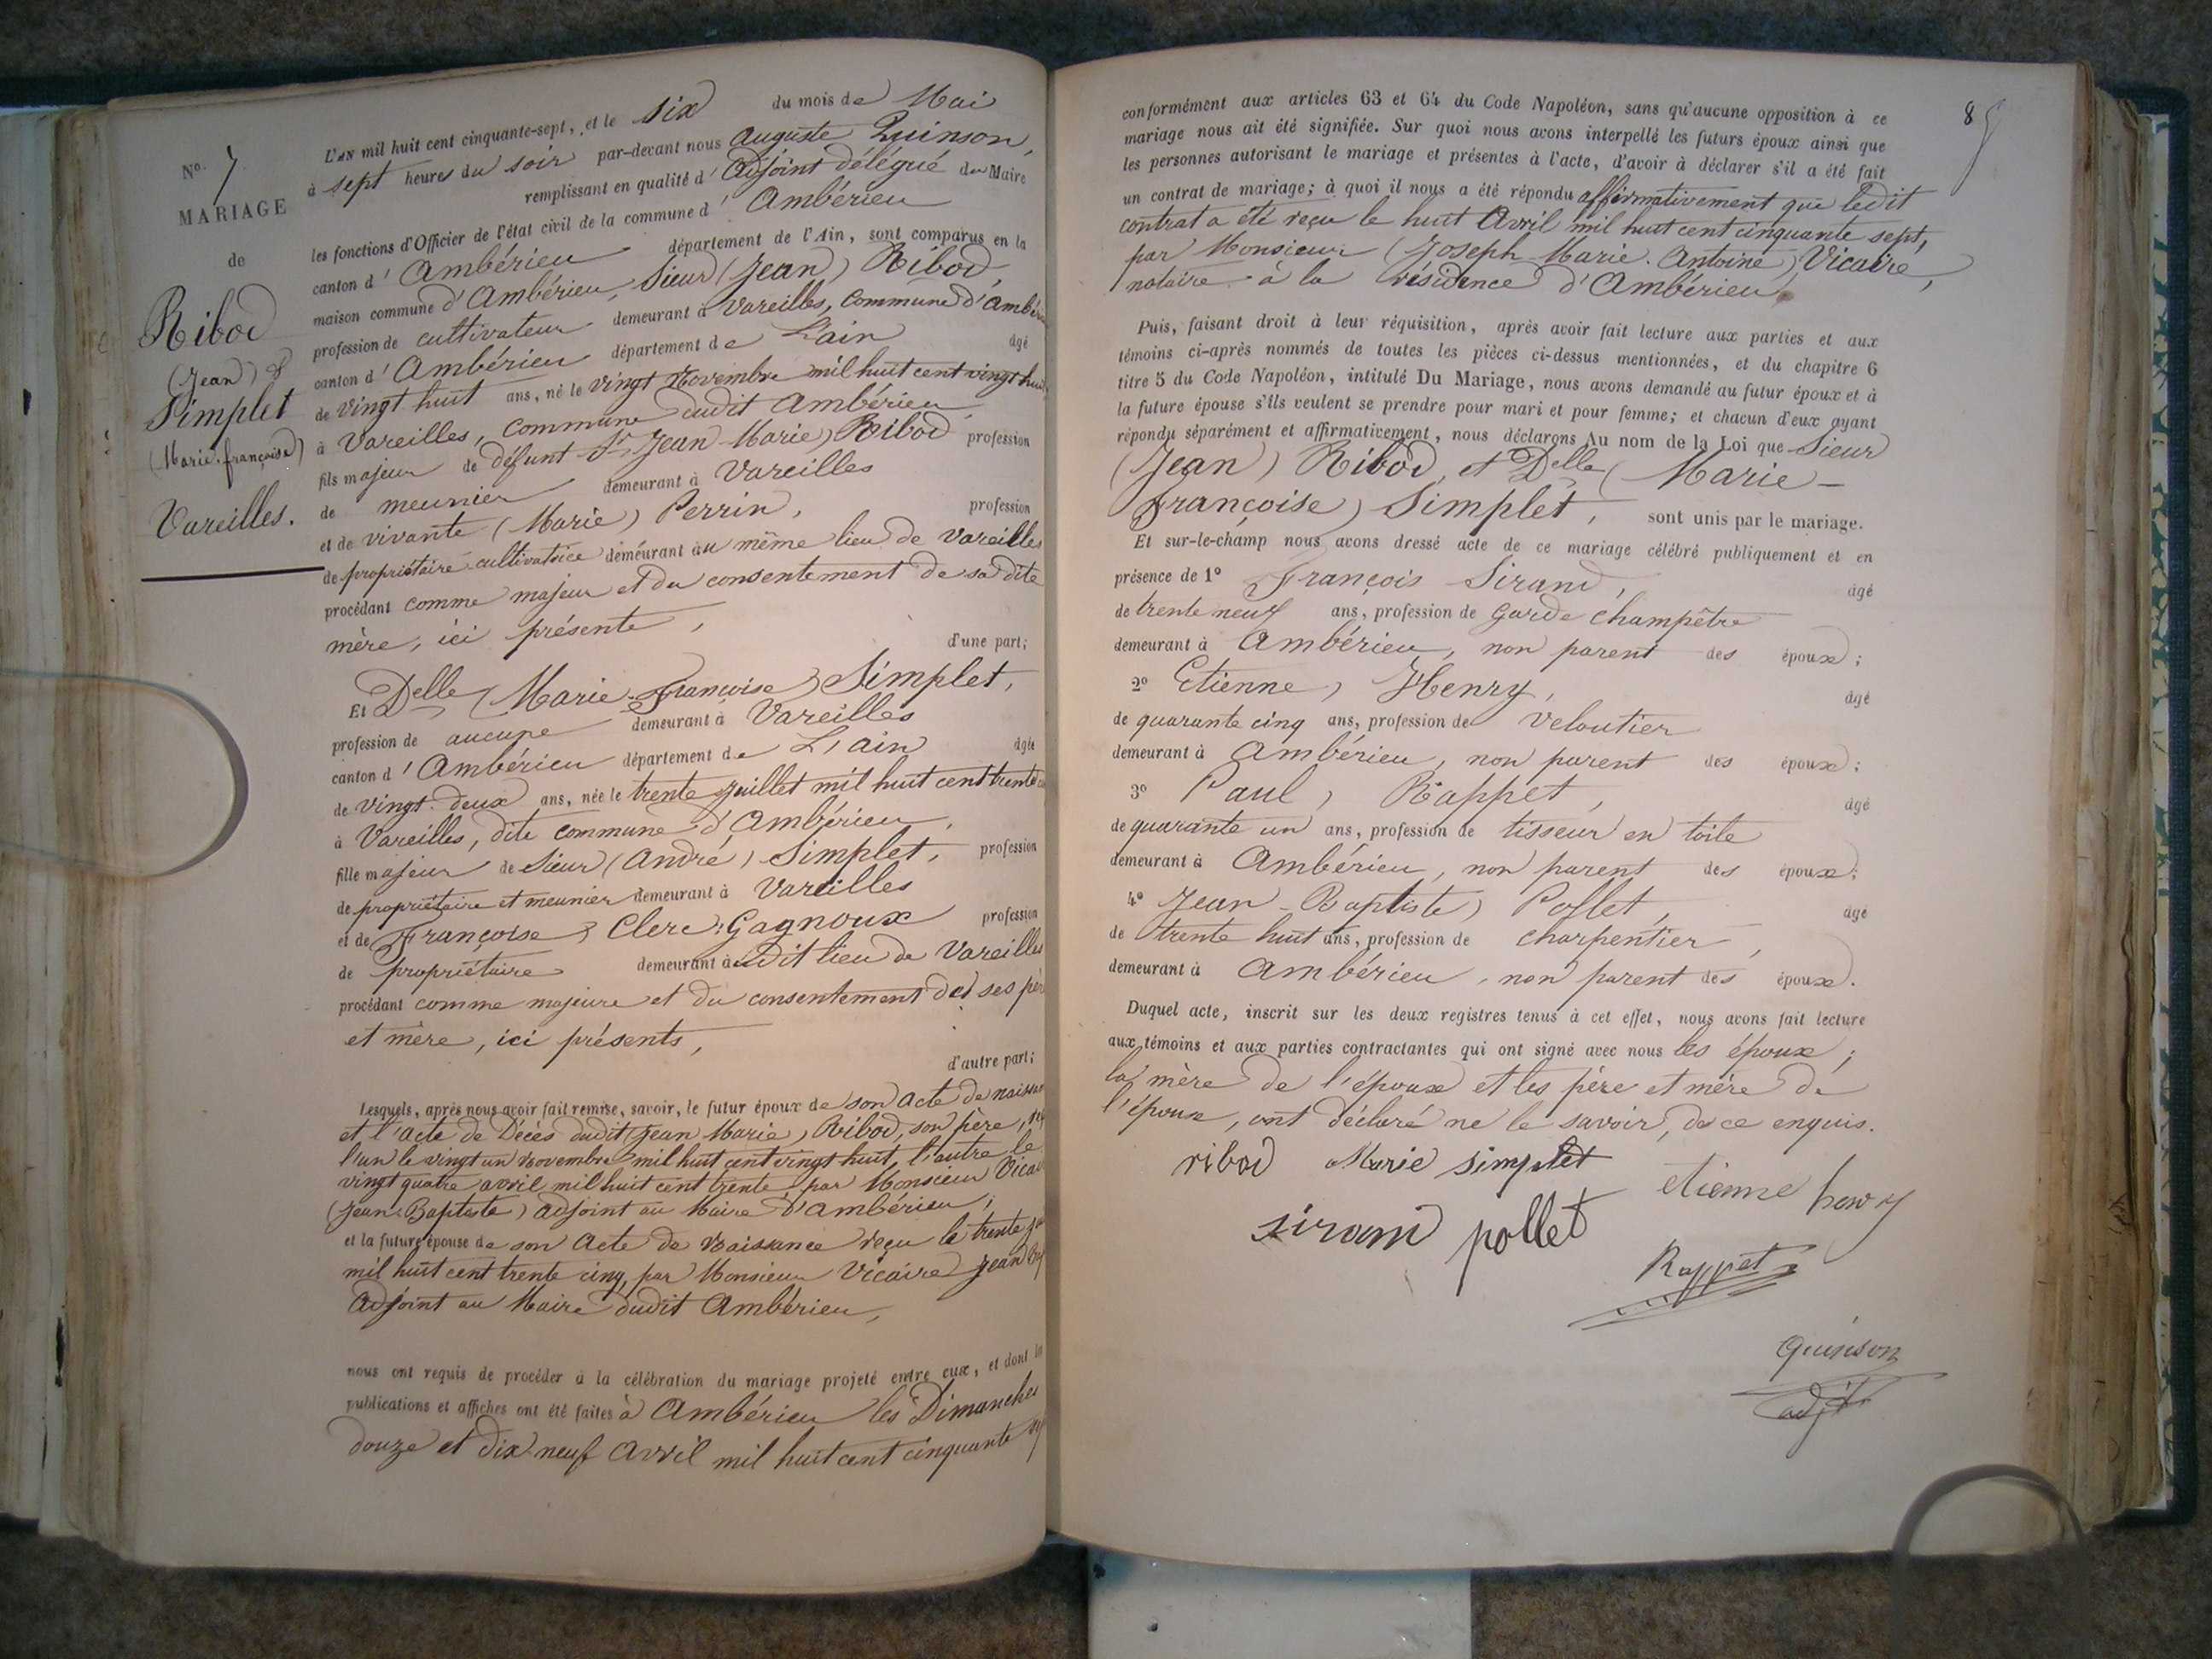 No. 7
MARIAGE
de
Ribod
(Jean) &
Simplet
(Marie-françoise)
Vareilles.
L'AN mil huit cent cinquante-sept, et le six du mois de Mai
à sept heures du soir par-devant nous Auguste Quinson,
remplissant en qualité d'adjoint délégué du Maire
les fonctions d'Officier de l'état civil de la commune d'Ambérieu
canton d'Ambérieu département de l'Ain, sont comparus en la
maison commune d'Ambérieu, Sieur (Jean) Ribod,
profession de cultivateur demeurant à Vareilles, commune d'Ambérieu
canton d'Ambérieu département de L'ain âgé
de vingt huit ans, né le vingt Novembre mil huit cent vingt huit
à Vareilles, commune dudit Ambérieu
fils majeur de défunt Sr Jean Marie) Ribod profession
de meunier demeurant à Vareilles
et de vivante (Marie) Perrin, profession
de propriétaire cultivatrice demeurant au même lieu de Vareilles
procédant comme majeur et du consentement de sa dite
mère, ici présente, d'une part;
Et Delle (Marie-Françoise) Simplet,
profession de aucune demeurant à Vareilles
canton d'Ambérieu département de L'ain âgée
de vingt-deux ans, née le trente Juillet mil huit cent trente
à Vareilles, dite commune d'Ambérieu,
fille majeur de Sieur (André) Simplet, profession
de propriétaire et meunier demeurant à Vareilles
et de Françoise) Clerc-Gagnoux profession
de propriétaire demeurant audit lieu de Vareilles
procédant comme majeure et du consentement de ses père
et mère, ici présents,
d'autre part;
Lesquels, après nous avoir fait remise, savoir, le futur époux de son acte de
et l'acte de Décès dudit (Jean Marie) Ribod, son père,
l'un le vingt un Novembre mil huit cent vingt huit, l'autre le
vingt quatre avril mil huit cent trente, par Monsieur
(Jean-Baptiste) adjoint au Maire d'Ambérieu;
et la future épouse de son acte de Naissance reçu le trente
mil huit cent trente cinq, par Monsieur Vicaire Jean
adjoint au Maire dudit Ambérieu,
nous ont requis de procéder à la célébration du mariage projeté entre eux, et dont les
publications et affiches ont été faites à Ambérieu les Dimanches
douze et dix-neuf Avril mil huit cent cinquante
conformément aux articles 63 et 64 du Code Napoléon, sans qu'aucune opposition à ce
mariage nous ait été signifiée. Sur quoi nous avons interpellé les futurs époux ainsi que
les personnes autorisant le mariage et présentes à l'acte, d'avoir à déclarer s'il a été fait
un contrat de mariage; à quoi il nous a été répondu affirmativement que ledit
contrat a été reçu le huit Avril mil huit cent cinquante sept,
par Monsieur (Joseph-Marie-Antoine) Vicaire,
notaire à la résidence d'Ambérieu,
Puis, faisant droit à leur réquisition, après avoir fait lecture aux parties et aux
témoins ci-après nommés de toutes les pièces ci-dessus mentionnées, et du chapitre 6
titre 5 du Code Napoléon, intitulé Du Mariage, nous avons demandé au futur époux et à
la future épouse s'ils veulent se prendre pour mari et pour femme; et chacun d'eux ayant
répondu séparément et affirmativement, nous déclarons Au nom de la Loi que Sieur
(Jean) Ribod, et Delle (Marie-
Françoise) Simplet, sont unis par le mariage.
Et sur-le-champ nous avons dressé acte de ce mariage célébré publiquement et en
présence de 1° François Sirand, âgé
de trente neuf ans, profession de Garde champêtre
demeurant à Ambérieu, non parent des époux;
2° Etienne) Henry, âgé
de quarante cinq ans, profession de veloutier
demeurant à Ambérieu, non parent des époux;
3° Paul) Rappet, âgé
de quarante un ans, profession de tisseur en toile
demeurant à Ambérieu, non parent des époux;
4° Jean-Baptiste) Pollet, âgé
de trente huit ans, profession de charpentier,
demeurant à Ambérieu, non parent des époux.
Duquel acte, inscrit sur les deux registres tenus à cet effet, nous avons fait lecture
aux témoins et aux parties contractantes qui ont signé avec nous les époux;
la mère de l'époux et les père et mère de
l'épouse, ont déclaré ne le savoir, de ce enquis.
ribod Marie simplet etienne henry
sirand pollet
Rappet
Quinson
adjt